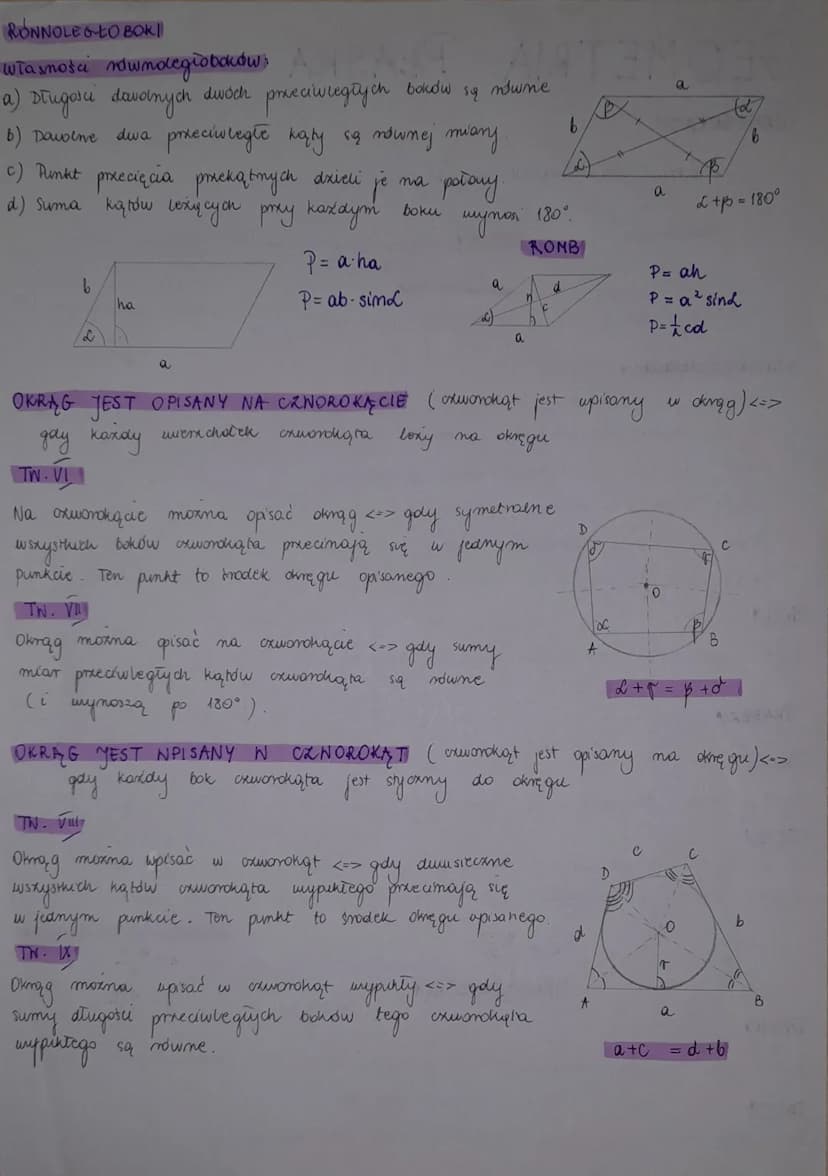 RÓWNOLEGŁOBOKI
własności równoległoboków:
a) Długości dowolnych dwóch przeciwległych boków są równe
b) Dowolne dwa przeciwległe kąty są równej miary
c) Punkt przecięcia przekątnych dzieli je na połowy.
d) Suma kątów leżących przy każdym boku wynosi 180°.
a
β α
b b
α β
a
α+β = 180°
b
ha
α
a
P = a·ha
P = ab·sinα
ROMB
a d
h c
α
a
P = ah
P = a² sinα
P = ½ cd
OKRĄG JEST OPISANY NA CZWOROKĄCIE (czworokąt jest wpisany w okrąg) <=>
gdy każdy wierzchołek czworokąta leży na okręgu
TW. VI
Na czworokącie można opisać okrąg <=> gdy symetralne
wszystkich boków czworokąta przecinają się w jednym
punkcie. Ten punkt to środek okręgu opisanego.
TW. VII
Okrąg można opisać na czworokącie <=> gdy sumy
miar przeciwległych kątów czworokąta są równe
(i wynoszą po 180°).
D C
δ γ
O
α β
A B
α+γ = β+δ
OKRĄG JEST WPISANY W CZWOROKĄT (czworokąt jest opisany na okręgu) <=>
gdy każdy bok czworokąta jest styczny do okręgu
TW. VIII
Okrąg można wpisać w czworokąt <=> gdy dwusieczne
wszystkich kątów czworokąta wypukłego przecinają się
w jednym punkcie. Ten punkt to środek okręgu opisanego.
TW. IX
Okrąg można wpisać w czworokąt wypukły <=> gdy
sumy długości przeciwległych boków tego czworokąta
wypukłego są równe.
c C
D
d O b
r
A a B
a+c = d+b